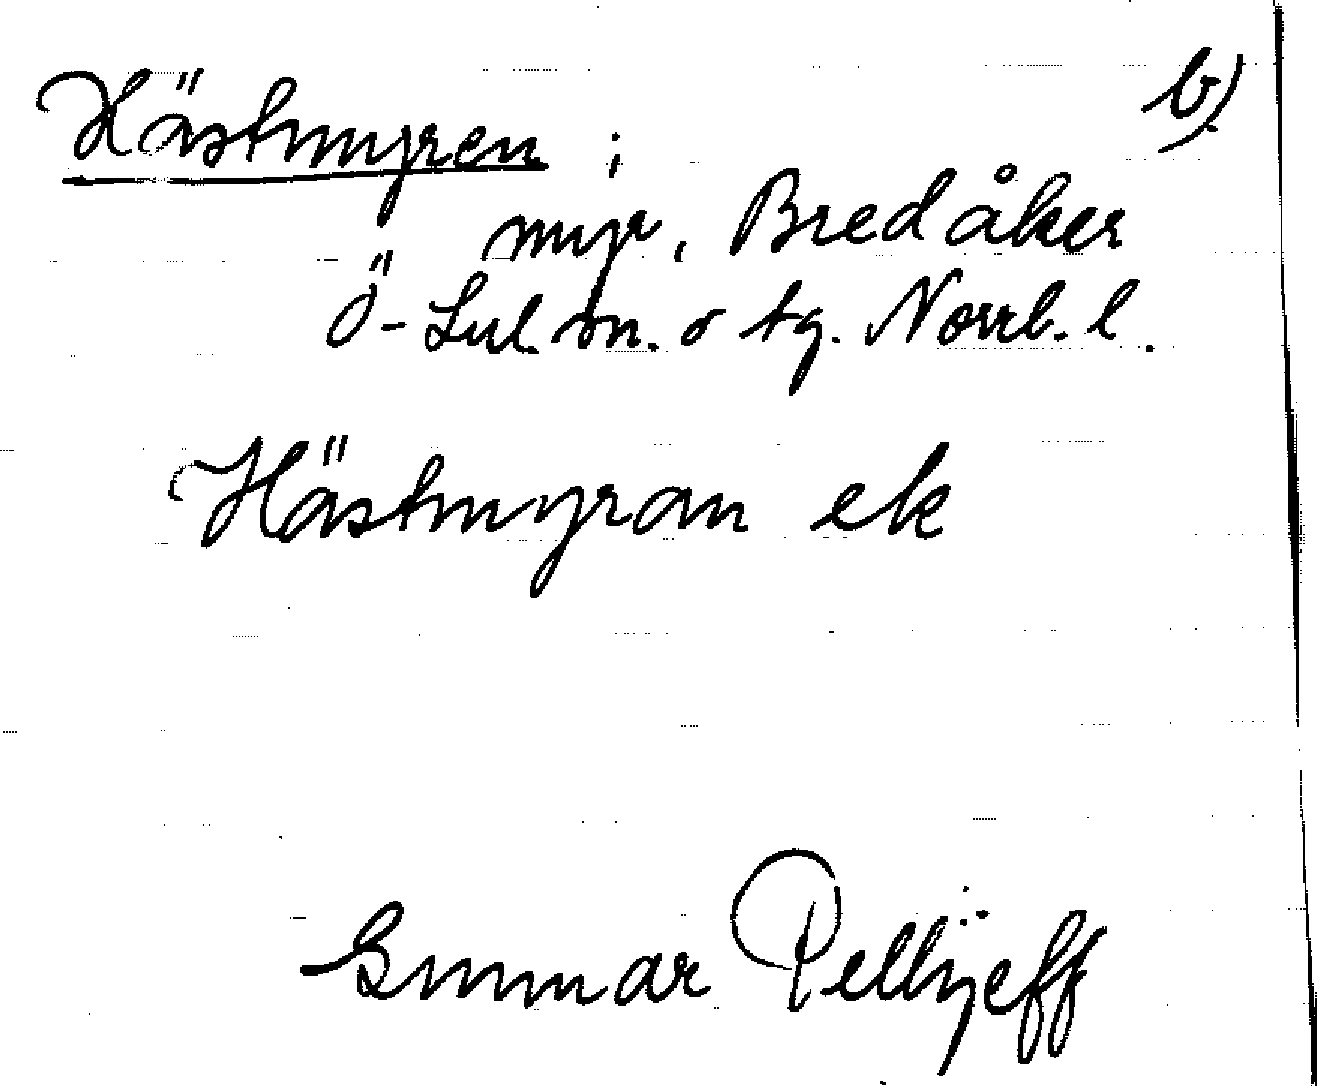 Hästmyren ; b)
myr, Bredåker
Ö-Lul. sn. o tg. Norrb. l.
Hästmyran ek
Gunnar Pellijeff